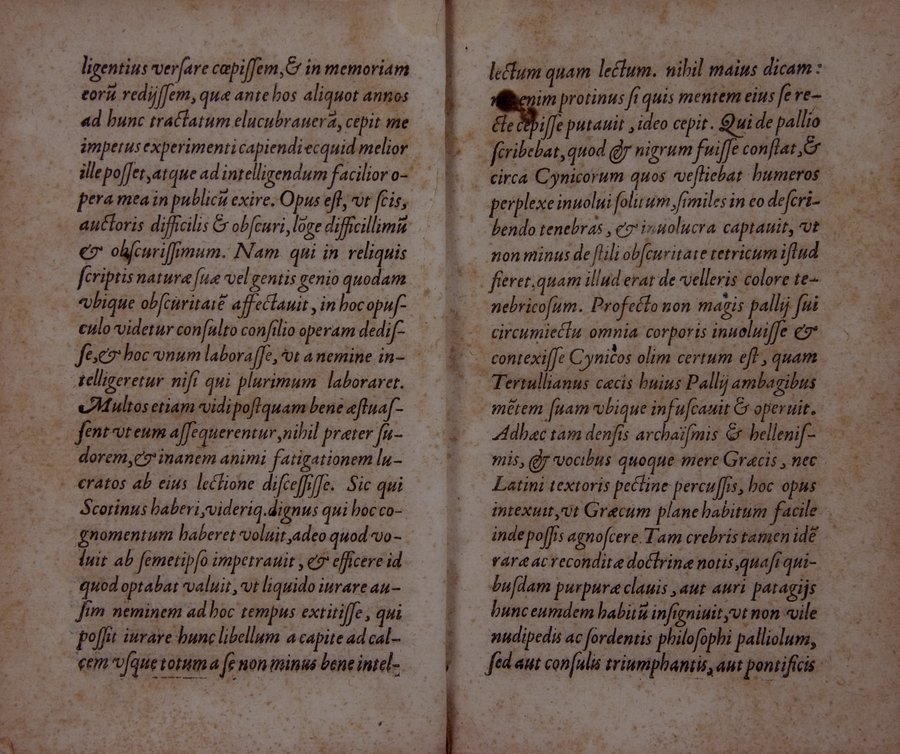 ligentius verſare cœpiſſem, & in memoriam
eorũ redijſſem, quæ ante hos aliquot annos
ad hunc tractatum elucubrauerã, cepit me
impetus experimenti capiendi ecquid melior
ille poſſet, atque ad intelligendum facilior o-
pera mea in publicũ exire. Opus eſt, vt ſcis,
auctoris difficilis & obſcuri, lõge difficillimũ
& obſcuriſſimum. Nam qui in reliquis
ſcriptis naturæ ſuæ vel gentis genio quodam
vbique obſcuritatẽ affectauit, in hoc opuſ-
culo videtur conſulto conſilio operam dediſ-
ſe, & hoc vnum laboraſſe, vt a nemine in-
telligeretur niſi qui plurimum laboraret.
Multos etiam vidi poſtquam bene æſtuaſ-
ſent vt eum aſſequerentur, nihil præter ſu-
dorem, & inanem animi fatigationem lu-
cratos ab eius lectione diſceſſiſſe. Sic qui
Scotinus haberi, videriq. dignus qui hoc co-
gnomentum haberet voluit, adeo quod vo-
luit ab ſemetipſo impetrauit, & efficere id
quod optabat valuit, vt liquido iurare au-
ſim neminem ad hoc tempus extitiſſe, qui
poſſit iurare hunc libellum a capite ad cal-
cem vſque totum a ſe non minus bene intel-
lectum quam lectum. nihil maius dicam:
enim protinus ſi quis mentem eius ſe re-
cte cepiſſe putauit, ideo cepit. Qui de pallio
ſcribebat, quod & nigrum fuiſſe conſtat, &
circa Cynicorum quos veſtiebat humeros
perplexe inuolui ſolitum, ſimiles in eo deſcri-
bendo tenebras, & inuolucra captauit, vt
non minus de ſtili obſcuritate tetricum iſtud
fieret, quam illud erat de velleris colore te-
nebricoſum. Profecto non magis pallij ſui
circumiectu omnia corporis inuoluiſſe &
contexiſſe Cynicos olim certum eſt, quam
Tertullianus cæcis huius Pallij ambagibus
mẽtem ſuam vbique infuſcauit & operuit.
Adhæc tam denſis archaïſmis & helleniſ-
mis, & vocibus quoque mere Græcis, nec
Latini textoris pectine percuſſis, hoc opus
intexuit, vt Græcum plane habitum facile
inde poſſis agnoſcere. Tam crebris tamen idẽ
raræ ac reconditæ doctrinæ notis, quaſi qui-
buſdam purpuræ clauis, aut auri patagijs
hunc eumdem habitũ inſigniuit, vt non vile
nudipedis ac ſordentis philoſophi palliolum,
ſed aut conſulis triumphantis, aut pontificis